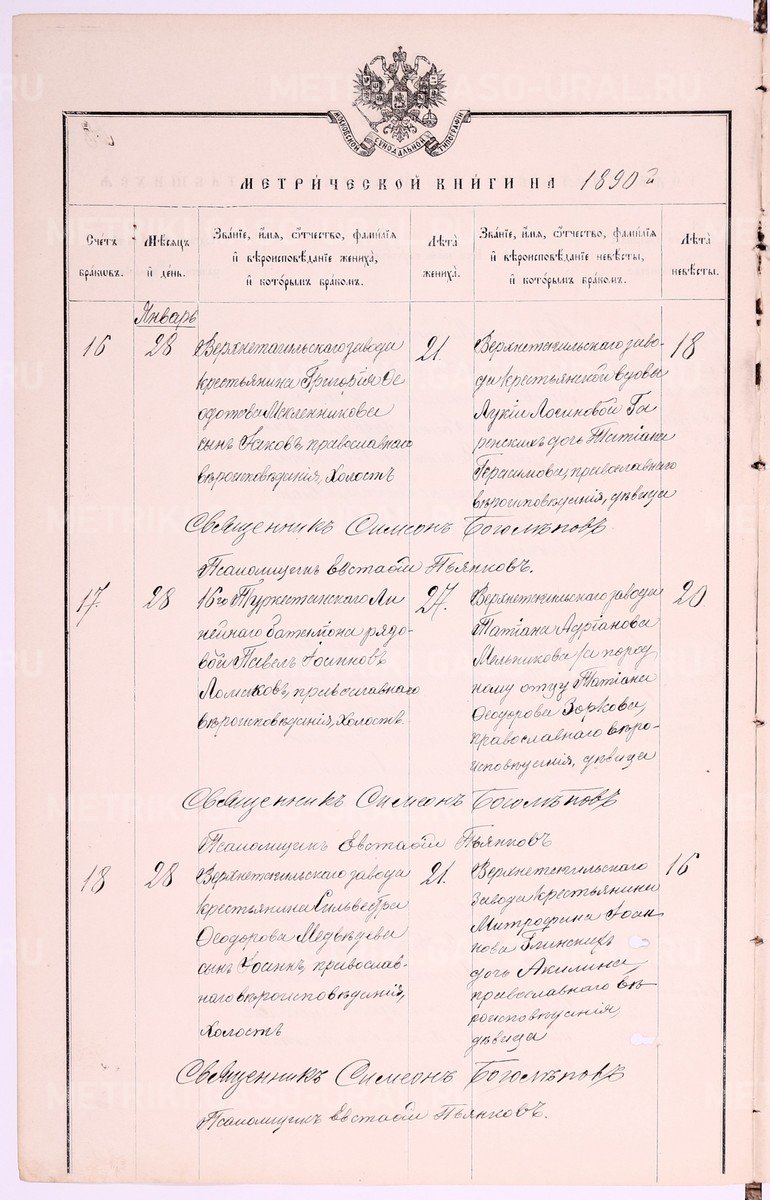 МОСКОВСКОЙ СѴНОДАЛЬНОЙ ТИПОГРАФІИ
МЕТРИЧЕСКОЙ КНИГИ НА 1890й
Счетъ браковъ.
Мѣсяцъ и день.
Званіе, имя, отчество, фамилія и вѣроисповѣданіе жениха, и которымъ бракомъ.
Лѣта жениха.
Званіе, имя, отчество, фамилія и вѣроисповѣданіе невѣсты, и которымъ бракомъ.
Лѣта невѣсты.
Январь
16
28
Верхнетагильскаго завода
крестьянина Григорія Ѳе
одотова Масленникова
сынъ Іаковъ, православнаго
вѣроисповѣданія, холостъ
21.
Верхнетагильскаго заво-
да крестьянской вдовы
Лукіи Лосиновой Га
ренскихъ дочь Татіана
Герасимова, православнаго
вѣроисповѣданія, дѣвица
18
Священникъ Симеонъ Боголѣповъ
Псаломщикъ Евстафій Пьянковъ.
17.
28
16го Туркестанскаго Ли
нейнаго баталіона рядо-
вой Павелъ Іоанновъ
Ломаковъ, православнаго
вѣроисповѣданія, холостъ.
27.
Верхнетагильскаго завода
Татіана Адріанова
Мельникова /а по род
ному отцу Татіана
Ѳеодорова Зоркова,
православнаго вѣро-
исповѣданія, дѣвица
20
Священникъ Симеонъ Боголѣповъ
Псаломщикъ Евстафій Пьянковъ
18
28
Верхнетагильскаго завода
крестьянина Сильвестра
Ѳеодорова Медвѣдева
сынъ Іоаннъ, православ-
наго вѣроисповѣданія,
холостъ
21.
Верхнетагильскаго
завода крестьянина
Митрофана Іоан
нова Глинскихъ
дочь Акилина,
православнаго вѣ-
роисповѣданія,
дѣвица
16
Священникъ Симеонъ Боголѣповъ
Псаломщикъ Евстафій Пьянковъ.